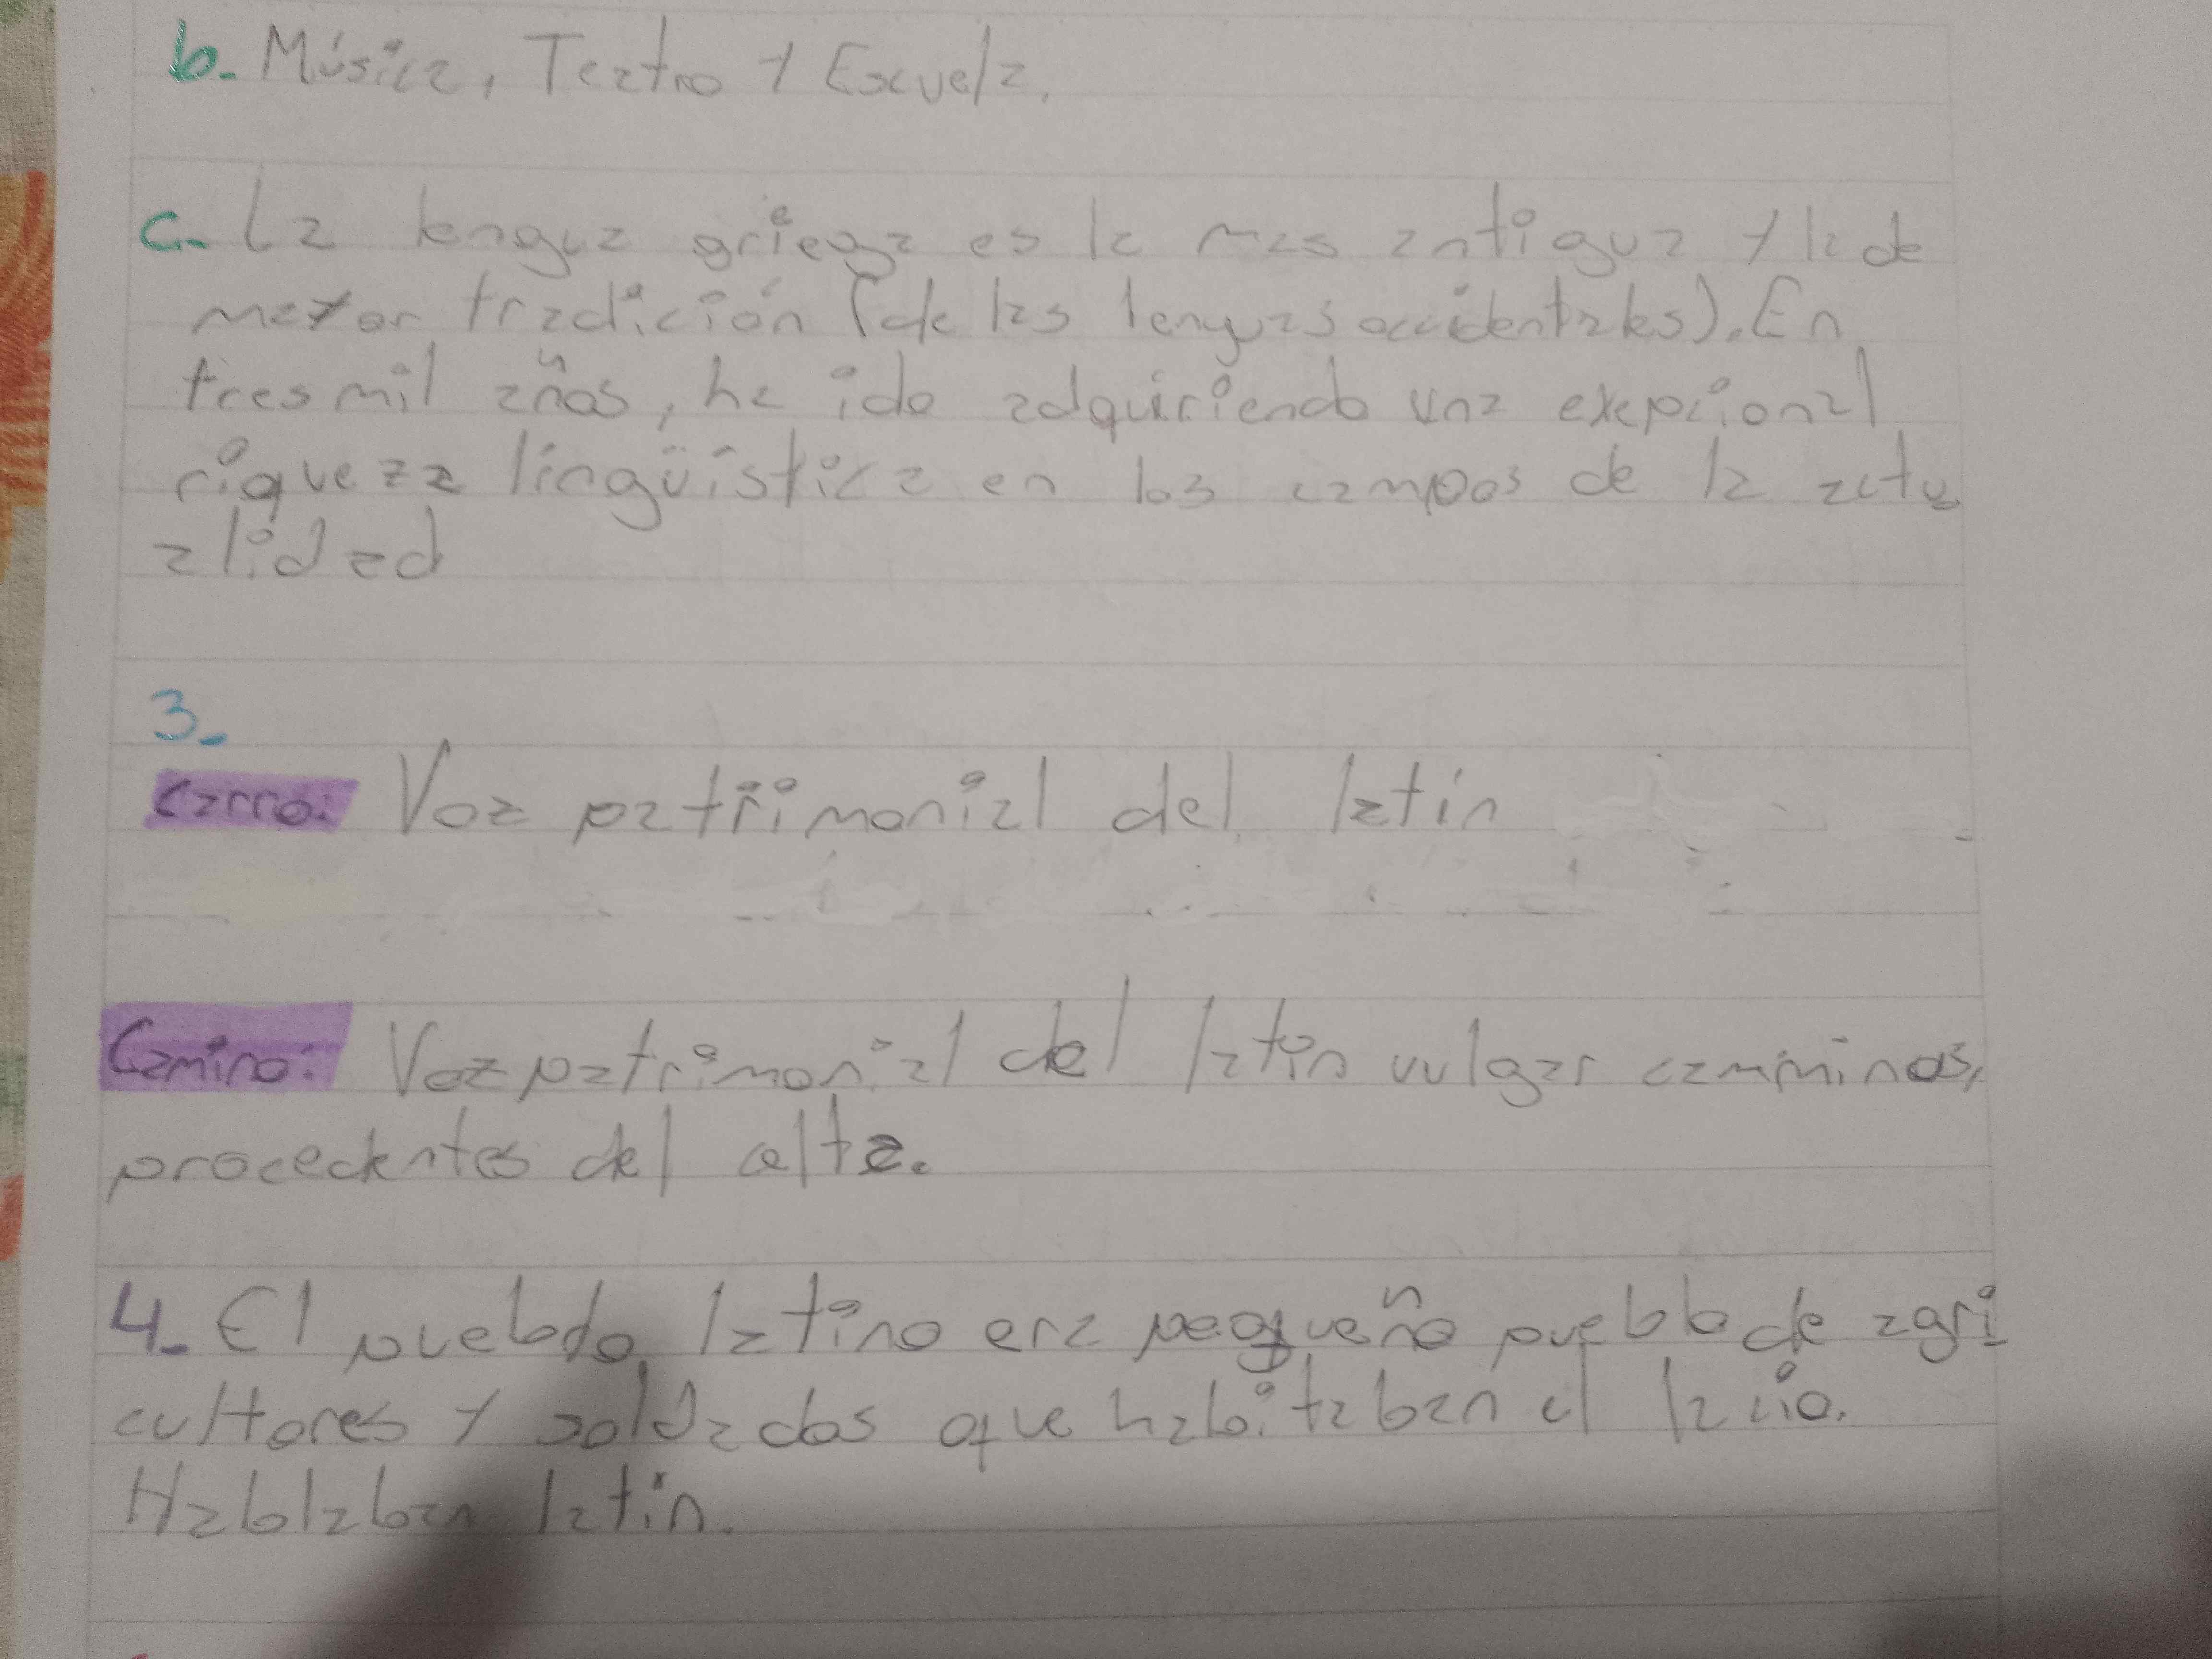 b. Música, Teatro y Escuela.
c. La lengua griega es la mas antigua y la de
mayor tradición (de las lenguas occidentales). En
tres mil años, ha ido adquiriendo una exepcional
riqueza lingüística en los campos de la actu
alidad
3.
Carro: Voz patrimonial del latín
Camino: Voz patrimonial del latín vulgar camminos,
procedentes del celta.
4. El pueblo latino era pequeño pueblo de agri
cultores y soldados que habitaban el lacio.
Hablaban latín.